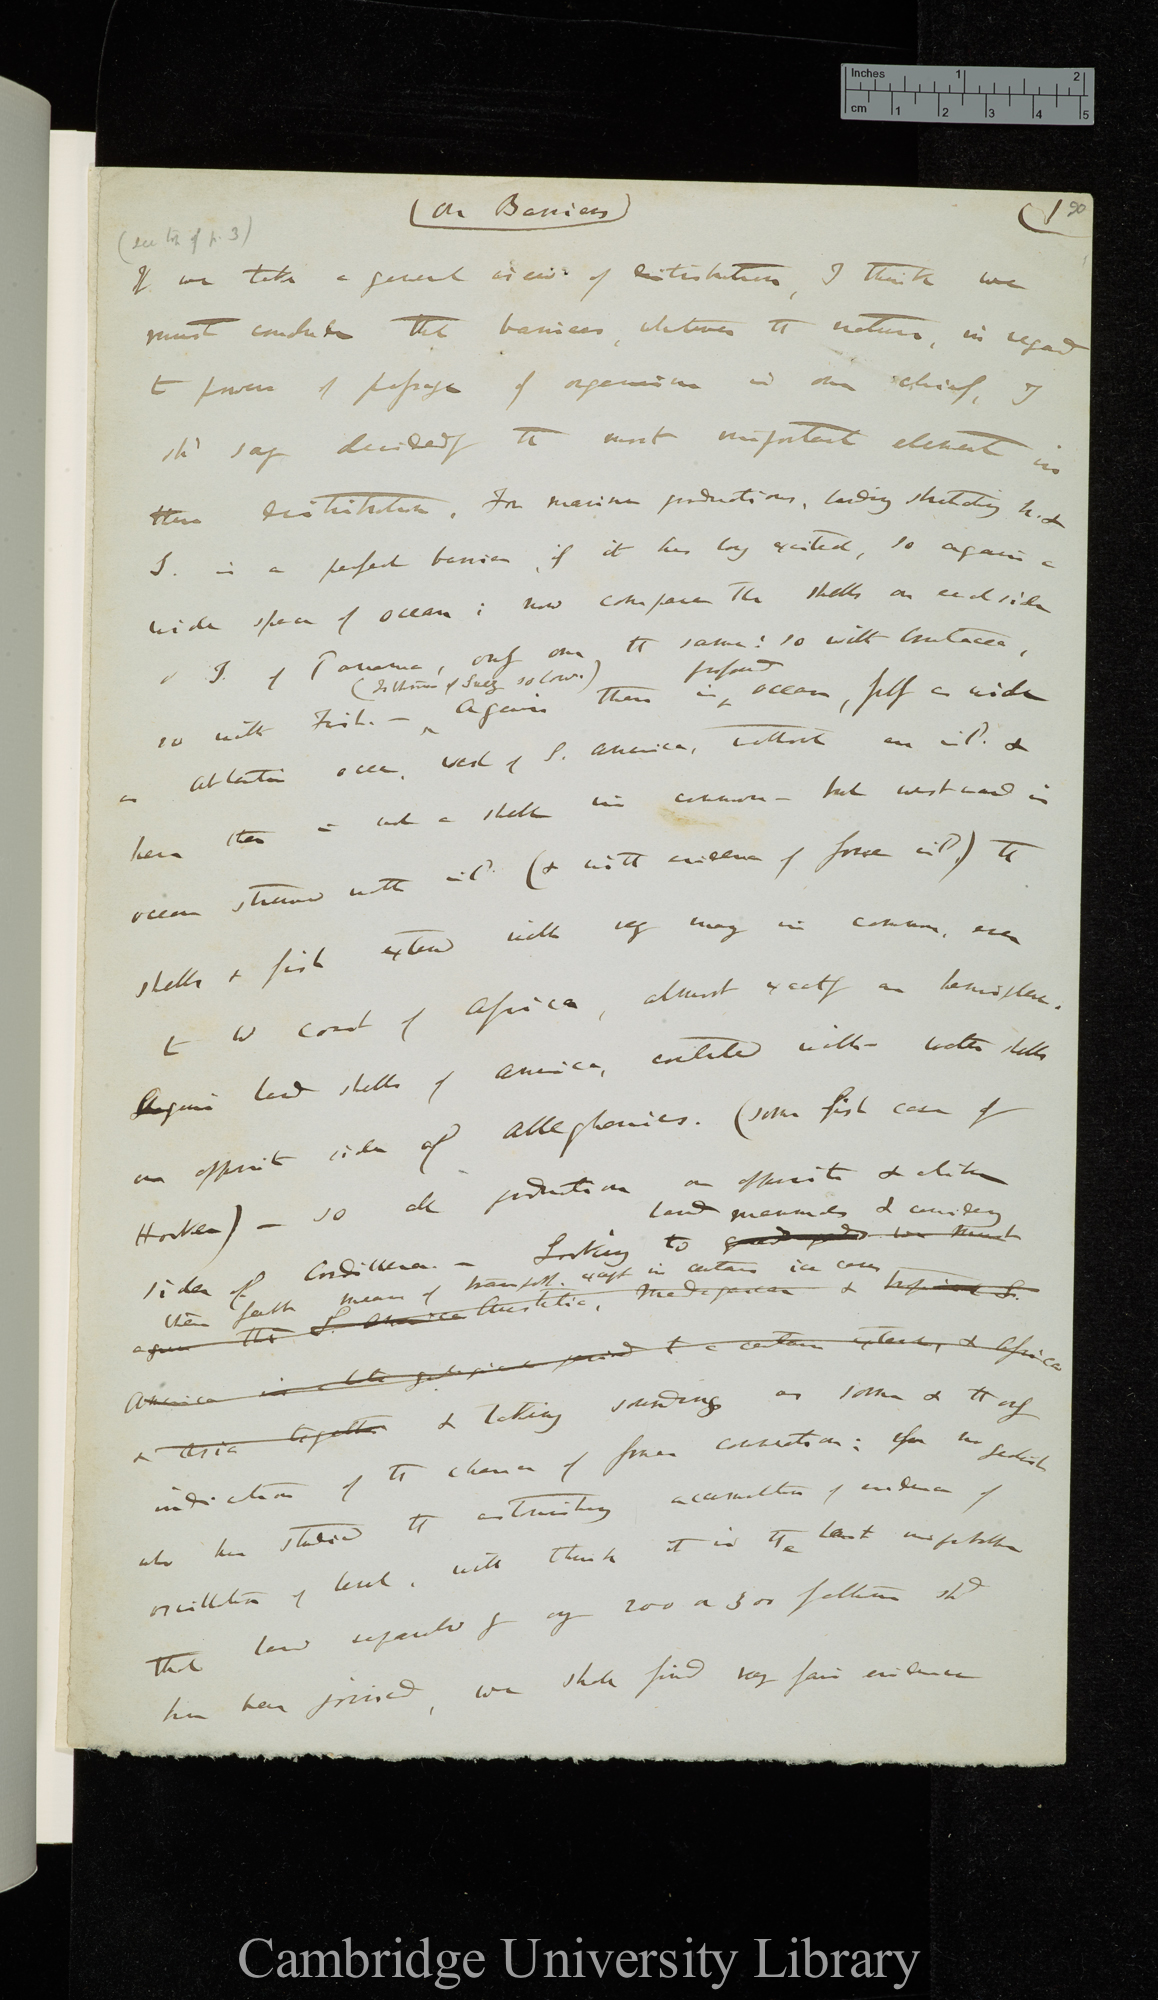 Inches 1 2
cm 1 2 3 4 5
(On Barriers)
(1 90
(see top of p. 3)
If we take a general view of distribution, I think we
must conclude that barriers, whatever the nature, in regard
to powers of passage of organism is one chief, I
shd say decidedly the most important element in
their distribution. For marine productions, land stretching N. &
S. is a perfect barrier, if it has long existed, so again a
wide space of ocean; now compare the shells on each side
of I. of Panama, only one the same: so with Crustacea,
(Isthmus of Suez so low)
profound
so with Fish. — Again there is ocean, full as wide
as Atlantic ocean, west of S. America, without an isld. &
here there is not a shell in common — but westward in
ocean strewed with isld. (& with evidence of former isld.) the
shells & fish extend with very many in common, even
to W coast of Africa, almost exactly an hemisphere.
Again land shells of America, contrasted with water shells
on opposite sides of Alleghanies. (some fish case of
Hooker) — so all productions on opposite & alike
land mammals & considering
sides of Cordillera. — Looking to we must
their feeble means of transport. except in certain ice cases
agree that S. America Australia, Madagascar & S.
America in a late geological period to a certain extent, & Africa
& Asia together & taking soundings as some & the only
indication of the chance of former connection; for no geologist
who has studied the astonishing accumulation of evidence of
oscillation of level, will think it is the least improbable
that land separated by only 200 or 300 fathoms shd
have been joined, we shall find very fair evidence
Cambridge University Library